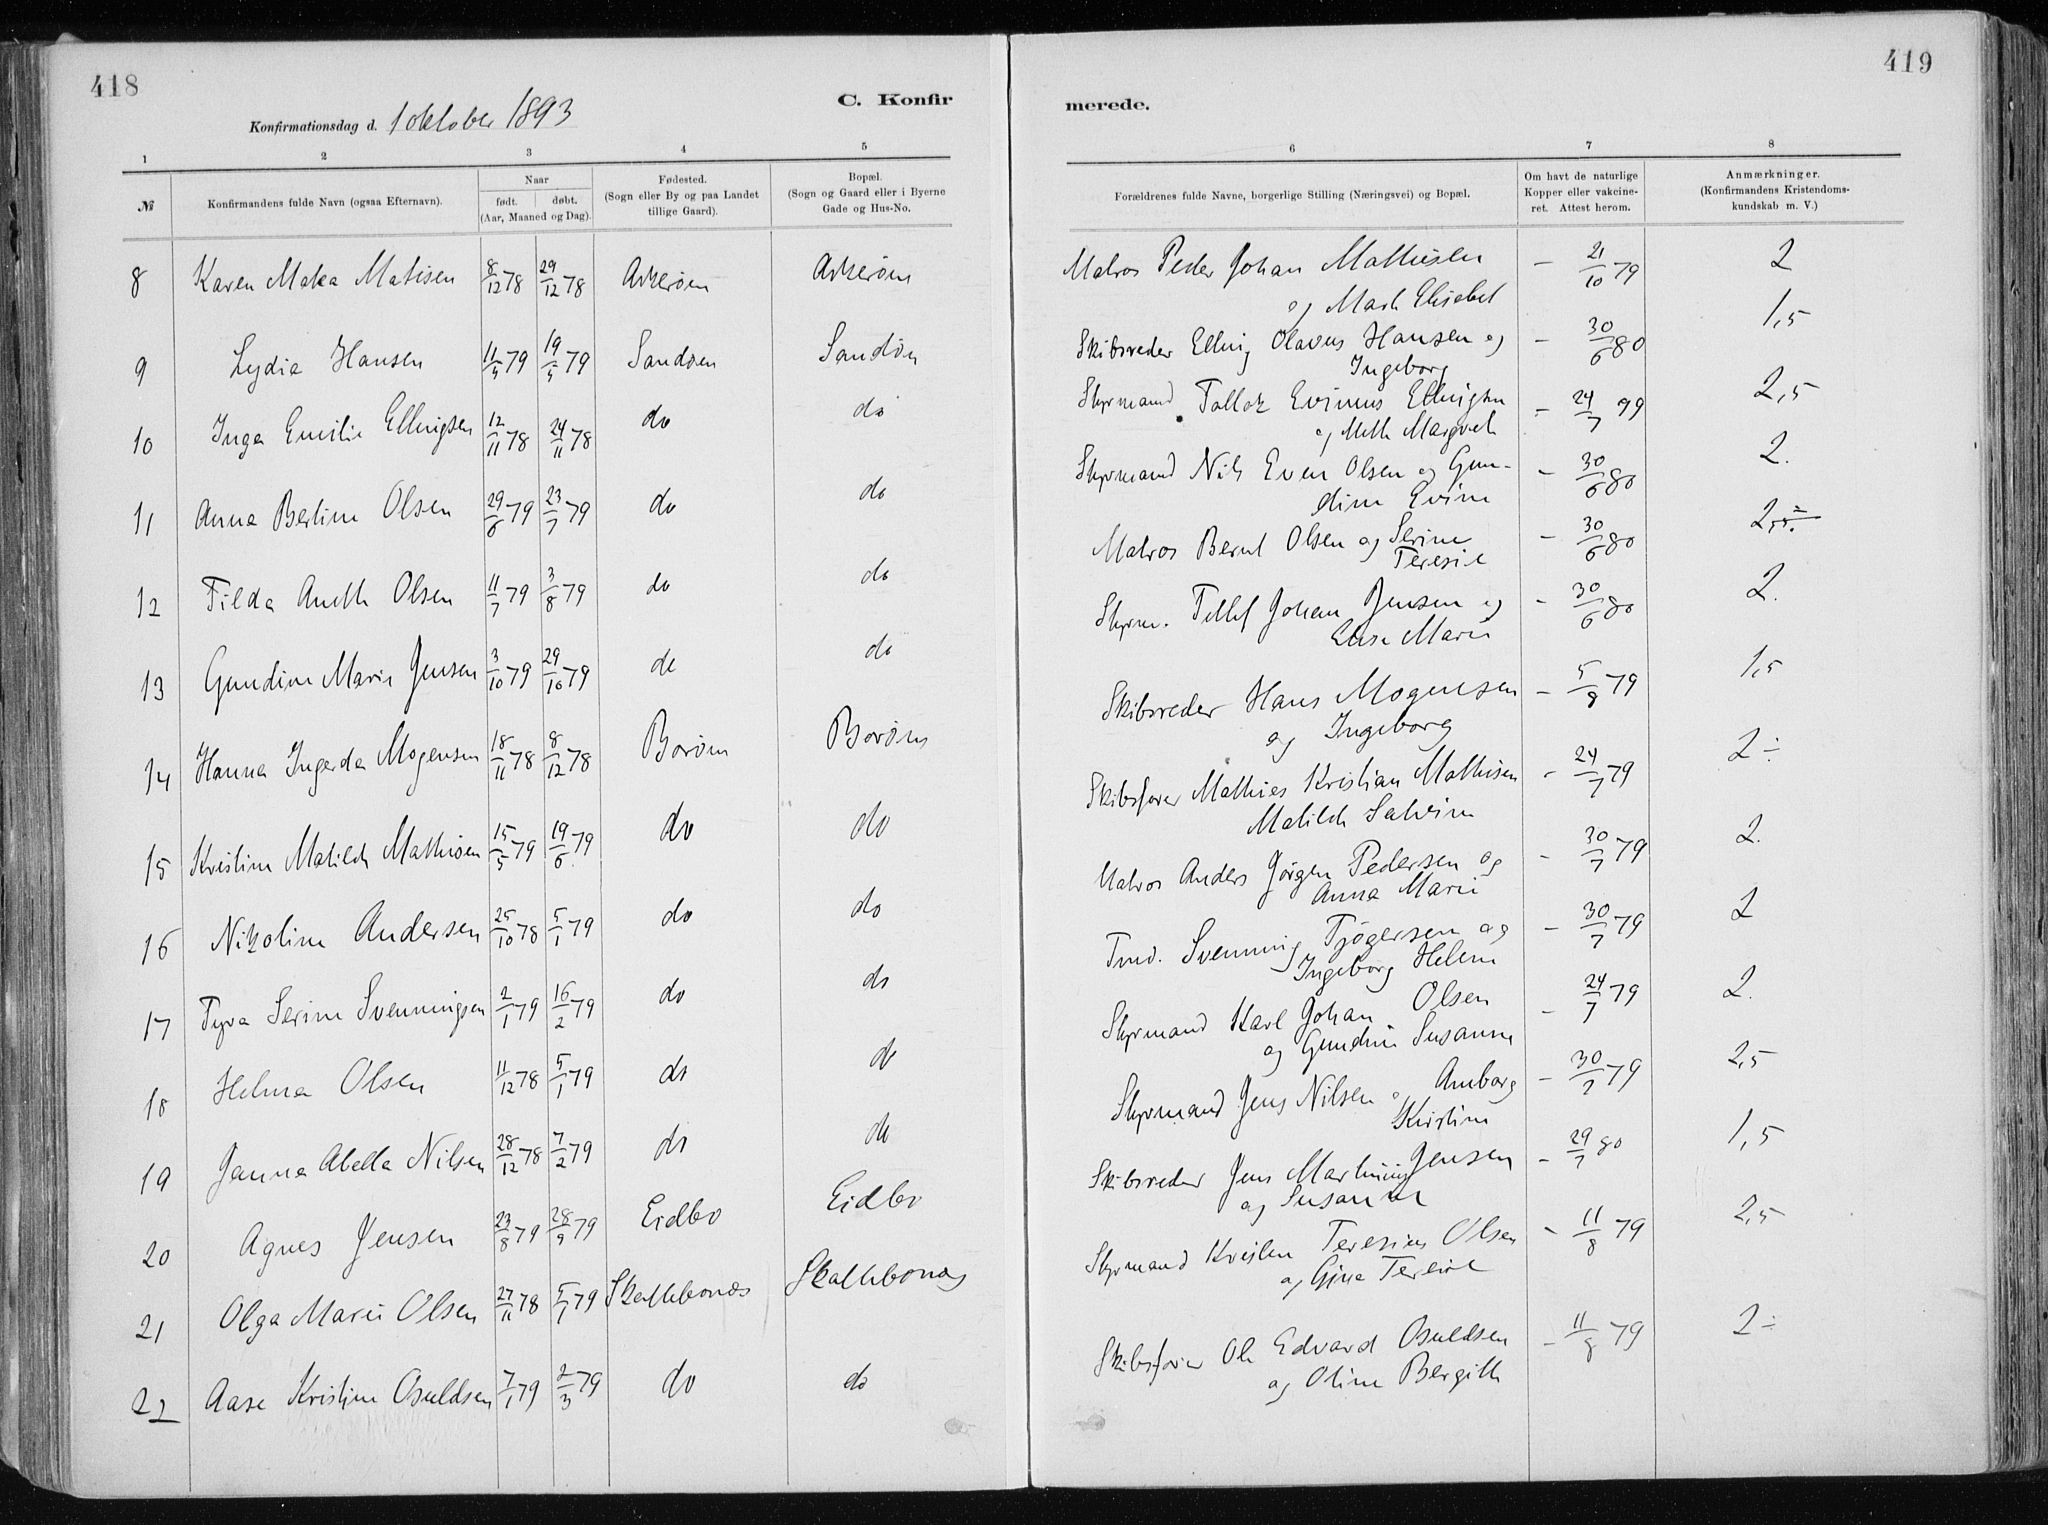 418
C. Konfir
Konfirmationsdag d. 1 oktober 1893
1 2 3 4 5
№ Konfirmandens fulde Navn (ogsaa Efternavn). Naar født. døbt. (Aar, Maaned og Dag). Fødested. (Sogn eller By og paa Landet tillige Gaard). Bopæl. (Sogn og Gaard eller i Byerne Gade og Hus-No.
8 Karen Matea Matisen 8/12 78 29/12 78 Askerøen Askerøen
9 Lydia Hansen 11/4 79 19/5 79 Sandøen Sandøen
10 Inga Emilie Ellingsen 12/11 78 24/11 78 do do
11 Anna Bertine Olsen 29/6 79 23/7 79 do do
12 Tilda Aneth Olsen 11/7 79 3/8 79 do do
13 Gundine Marie Jensen 3/10 79 29/10 79 do do
14 Hanna Ingerda Mogensen 18/11 78 8/12 78 Borøen Borøen
15 Kristine Matilde Mathisen 15/5 79 19/6 79 do do
16 Nikoline Andersen 25/10 78 5/1 79 do do
17 Tyra Serine Svenningsen 2/1 79 16/2 79 do do
18 Helma Olsen 11/12 78 5/1 79 do do
19 Janna Abella Nilsen 28/12 78 7/2 79 do do
20 Agnes Jensen 23/8 79 28/9 79 Eidbo Eidbo
21 Olga Marie Olsen 27/11 78 5/1 79 Skattebonæs Skattebonæs
22 Aase Kristine Osuldsen 7/1 79 2/3 79 do do
419
merede.
6 7 8
Forældrenes fulde Navne, borgerlige Stilling (Næringsvei) og Bopæl. Om havt de naturlige Kopper eller vakcineret. Attest herom. Anmærkninger. (Konfirmandens Kristendomskundskab m. V.)
Matros Peder Johan Mathisen – 21/10 79 2
og Elisabet
Skibsreder Elling Olavus Hansen og – 30/6 80 1,5
Ingeborg
Styrmand Tallak Evinus Ellingsen – 24/7 99 2,5
og Mette Margret
Styrmand Nils Even Olsen og Gun- – 30/6 80 2.
dine Evine
Matros Bernt Olsen og Serine – 30/6 80
Teresie
Styrm. Tellef Johan Jensen og – 30/6 80 2.
Elise Marie
Skibsreder Hans Mogensen – 5/8 79 1,5
og Ingeborg
Skibsfører Mathies Kristian Mathisen – 24/7 79 2÷
Matilde Salvine
Matros Anders Jørgen Pedersen og – 30/7 79 2.
Anna Marie
Tmd. Svenning Tjøgersen og – 30/7 79 2
Ingeborg Helene
Styrmand Karl Johan Olsen – 24/7 79 2.
og Gundine Susanne
Styrmand Jens Nilsen o Amborg – 30/7 79 2,5
Kristine
Skibsreder Jens Martinius Jensen – 29/7 80 1,5
og Susanne
Styrmand Kristen Teresius Olsen – 11/8 79 2,5
og Gina Teresie
Skibsfører Ole Edvard Osuldsen – 11/8 79 2÷
og Oline Bergitte